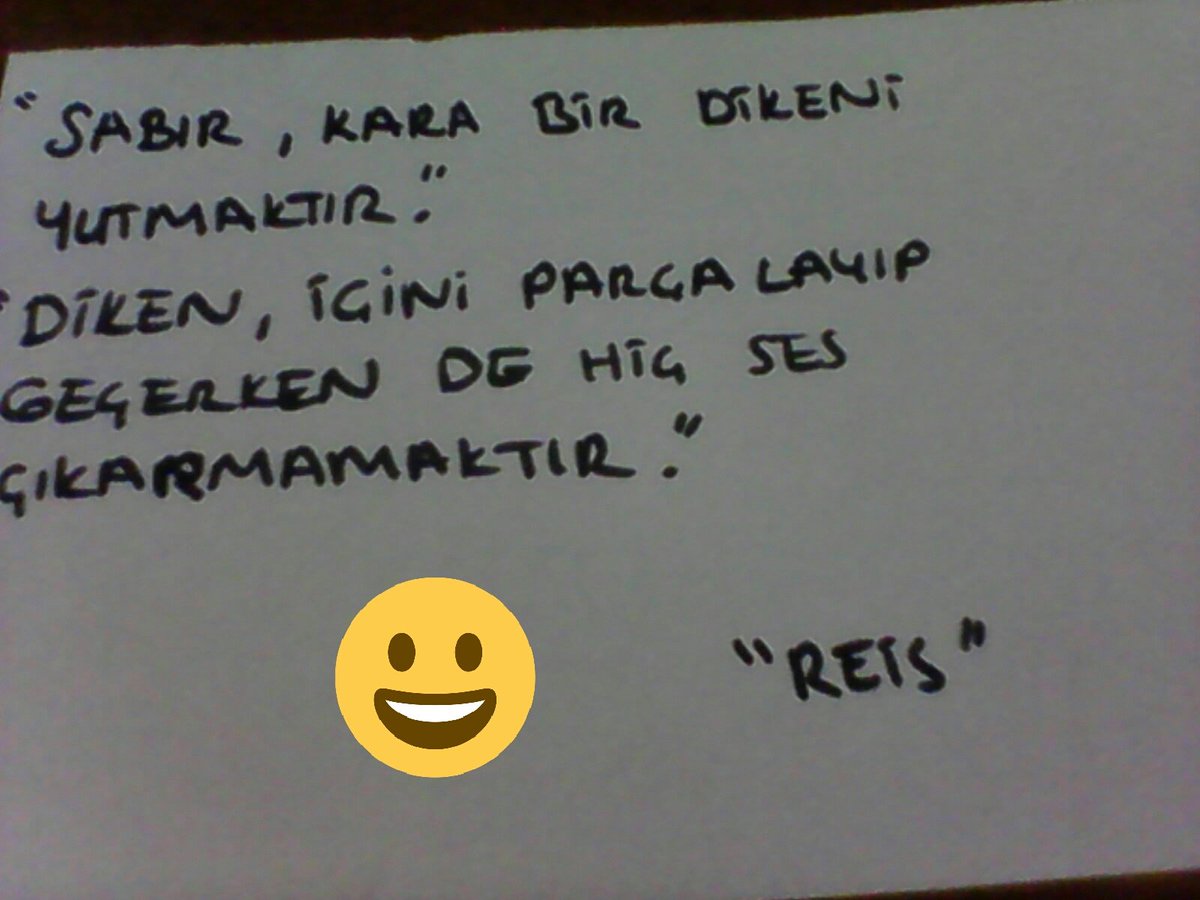 "SABIR, KARA BİR DİKENİ
YUTMAKTIR."
"DİKEN, İÇİNİ PARÇALAYIP
GEÇERKEN DE HİÇ SES
ÇIKARMAMAKTIR."
"REİS"